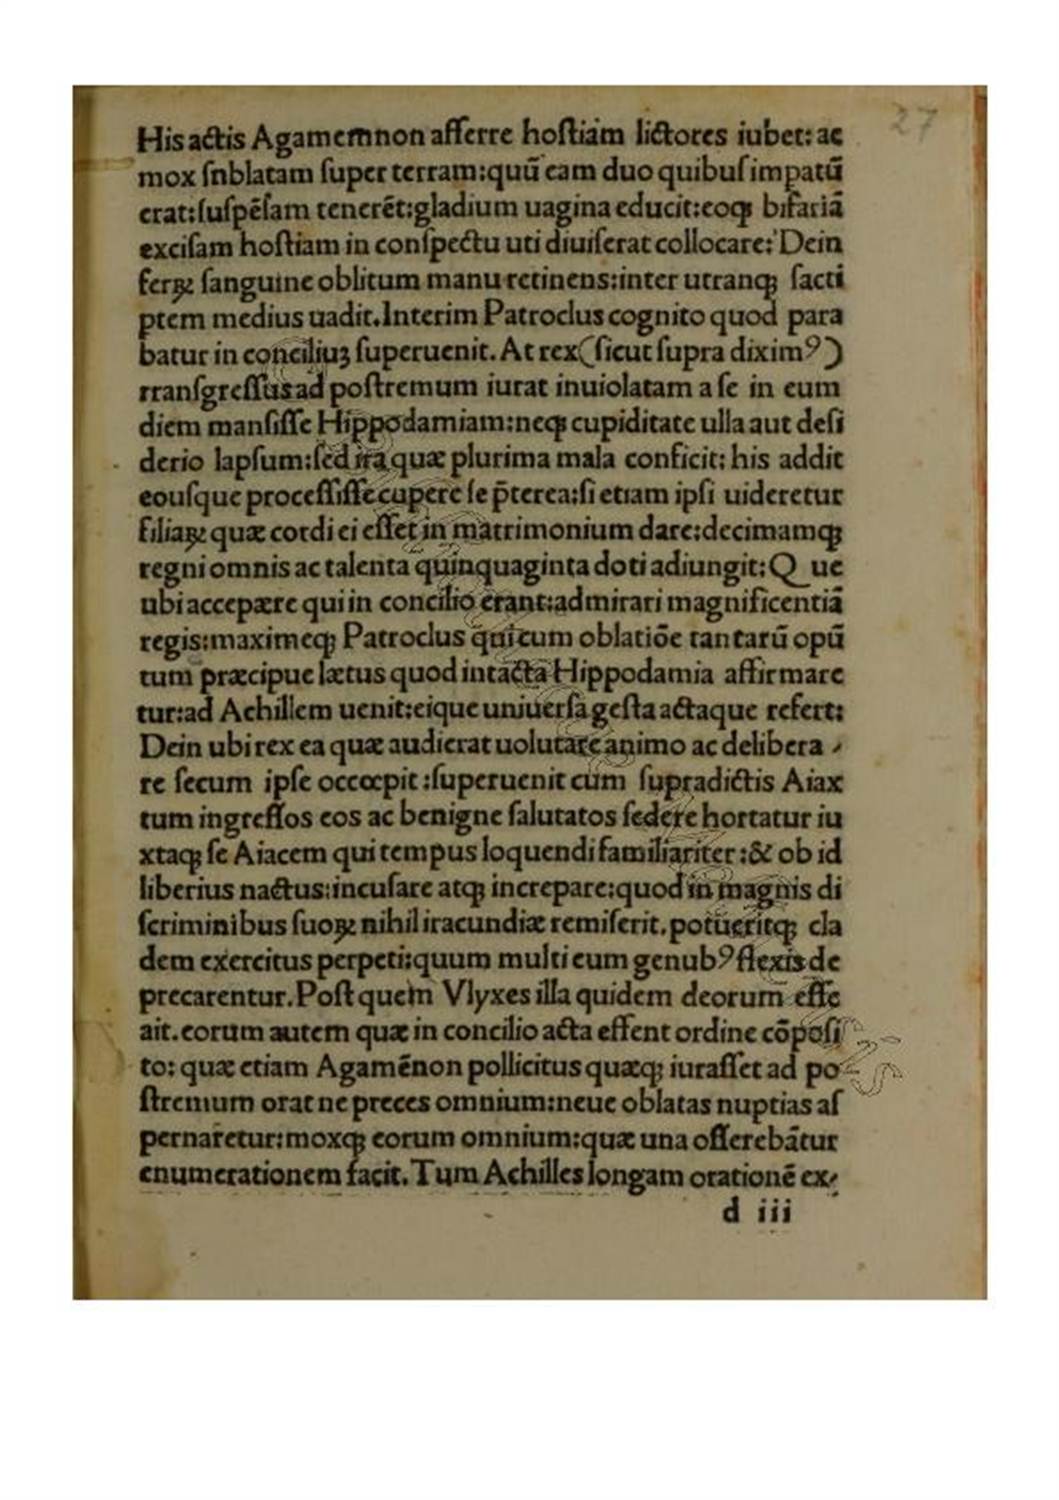 27
His actis Agamemnon afferre hoſtiam lictores iubet: ac
mox ſnblatam ſuper terram:quū eam duo quibuſ impatū
erat:ſuſpēſam tenerēt:gladium uagina educit:eoq; bifariā
exciſam hoſtiam in conſpectu uti diuiſerat collocare: Dein
ferꝝ ſanguine oblitum manu retinens:inter utranq; ſacri
ptem medius uadit.Interim Patroclus cognito quod para
batur in conciliuꝫ ſuperuenit. At rex(ſicut ſupra diximꝰ)
rranſgreſſus ad poſtremum iurat inuiolatam a ſe in eum
diem manſiſſe Hippodamiam:neq; cupiditate ulla aut deſi
derio lapſum:ſed ira quæ plurima mala conficit: his addit
eouſque proceſſiſſe cupere ſe p̄terea:ſi etiam ipſi uideretur
filiaꝝ quæ cordi ei eſſet in matrimonium dare:decimamq;
regni omnis ac talenta quinquaginta doti adiungit: Q ue
ubi accepære qui in concilio erant:admirari magnificentiā
regis:maximeq; Patroclus qui cum oblatiōe tantarū opū
tum præcipue lætus quod intacta Hippodamia affirmare
tur:ad Achillem uenit:eique uniuerſa geſta actaque refert:
Dein ubi rex ea quæ audierat uolutare animo ac delibera ⸗
re ſecum ipſe occœpit :ſuperuenit cum ſupradictis Aiax
tum ingreſſos eos ac benigne ſalutatos ſedere hortatur iu
xtaq; ſe Aiacem qui tempus loquendi familiariter :& ob id
liberius nactus:incuſare atq; increpare:quod in magnis di
ſcriminibus ſuoꝝ nihil iracundiæ remiſerit.potueritq; cla
dem exercitus perpeti:quum multi eum genubꝰ flexis de
precarentur.Poſt quem Vlyxes illa quidem deorum eſſe
ait.eorum autem quæ in concilio acta eſſent ordine cōpoſi
to: quæ etiam Agamēnon pollicitus quæq; iuraſſet ad po
ſtremum orat ne preces omnium:neue oblatas nuptias aſ
pernaretur:moxq; eorum omnium:quæ una offerebātur
enumerationem facit. Tum Achilles longam orationē ex⸗
d iii